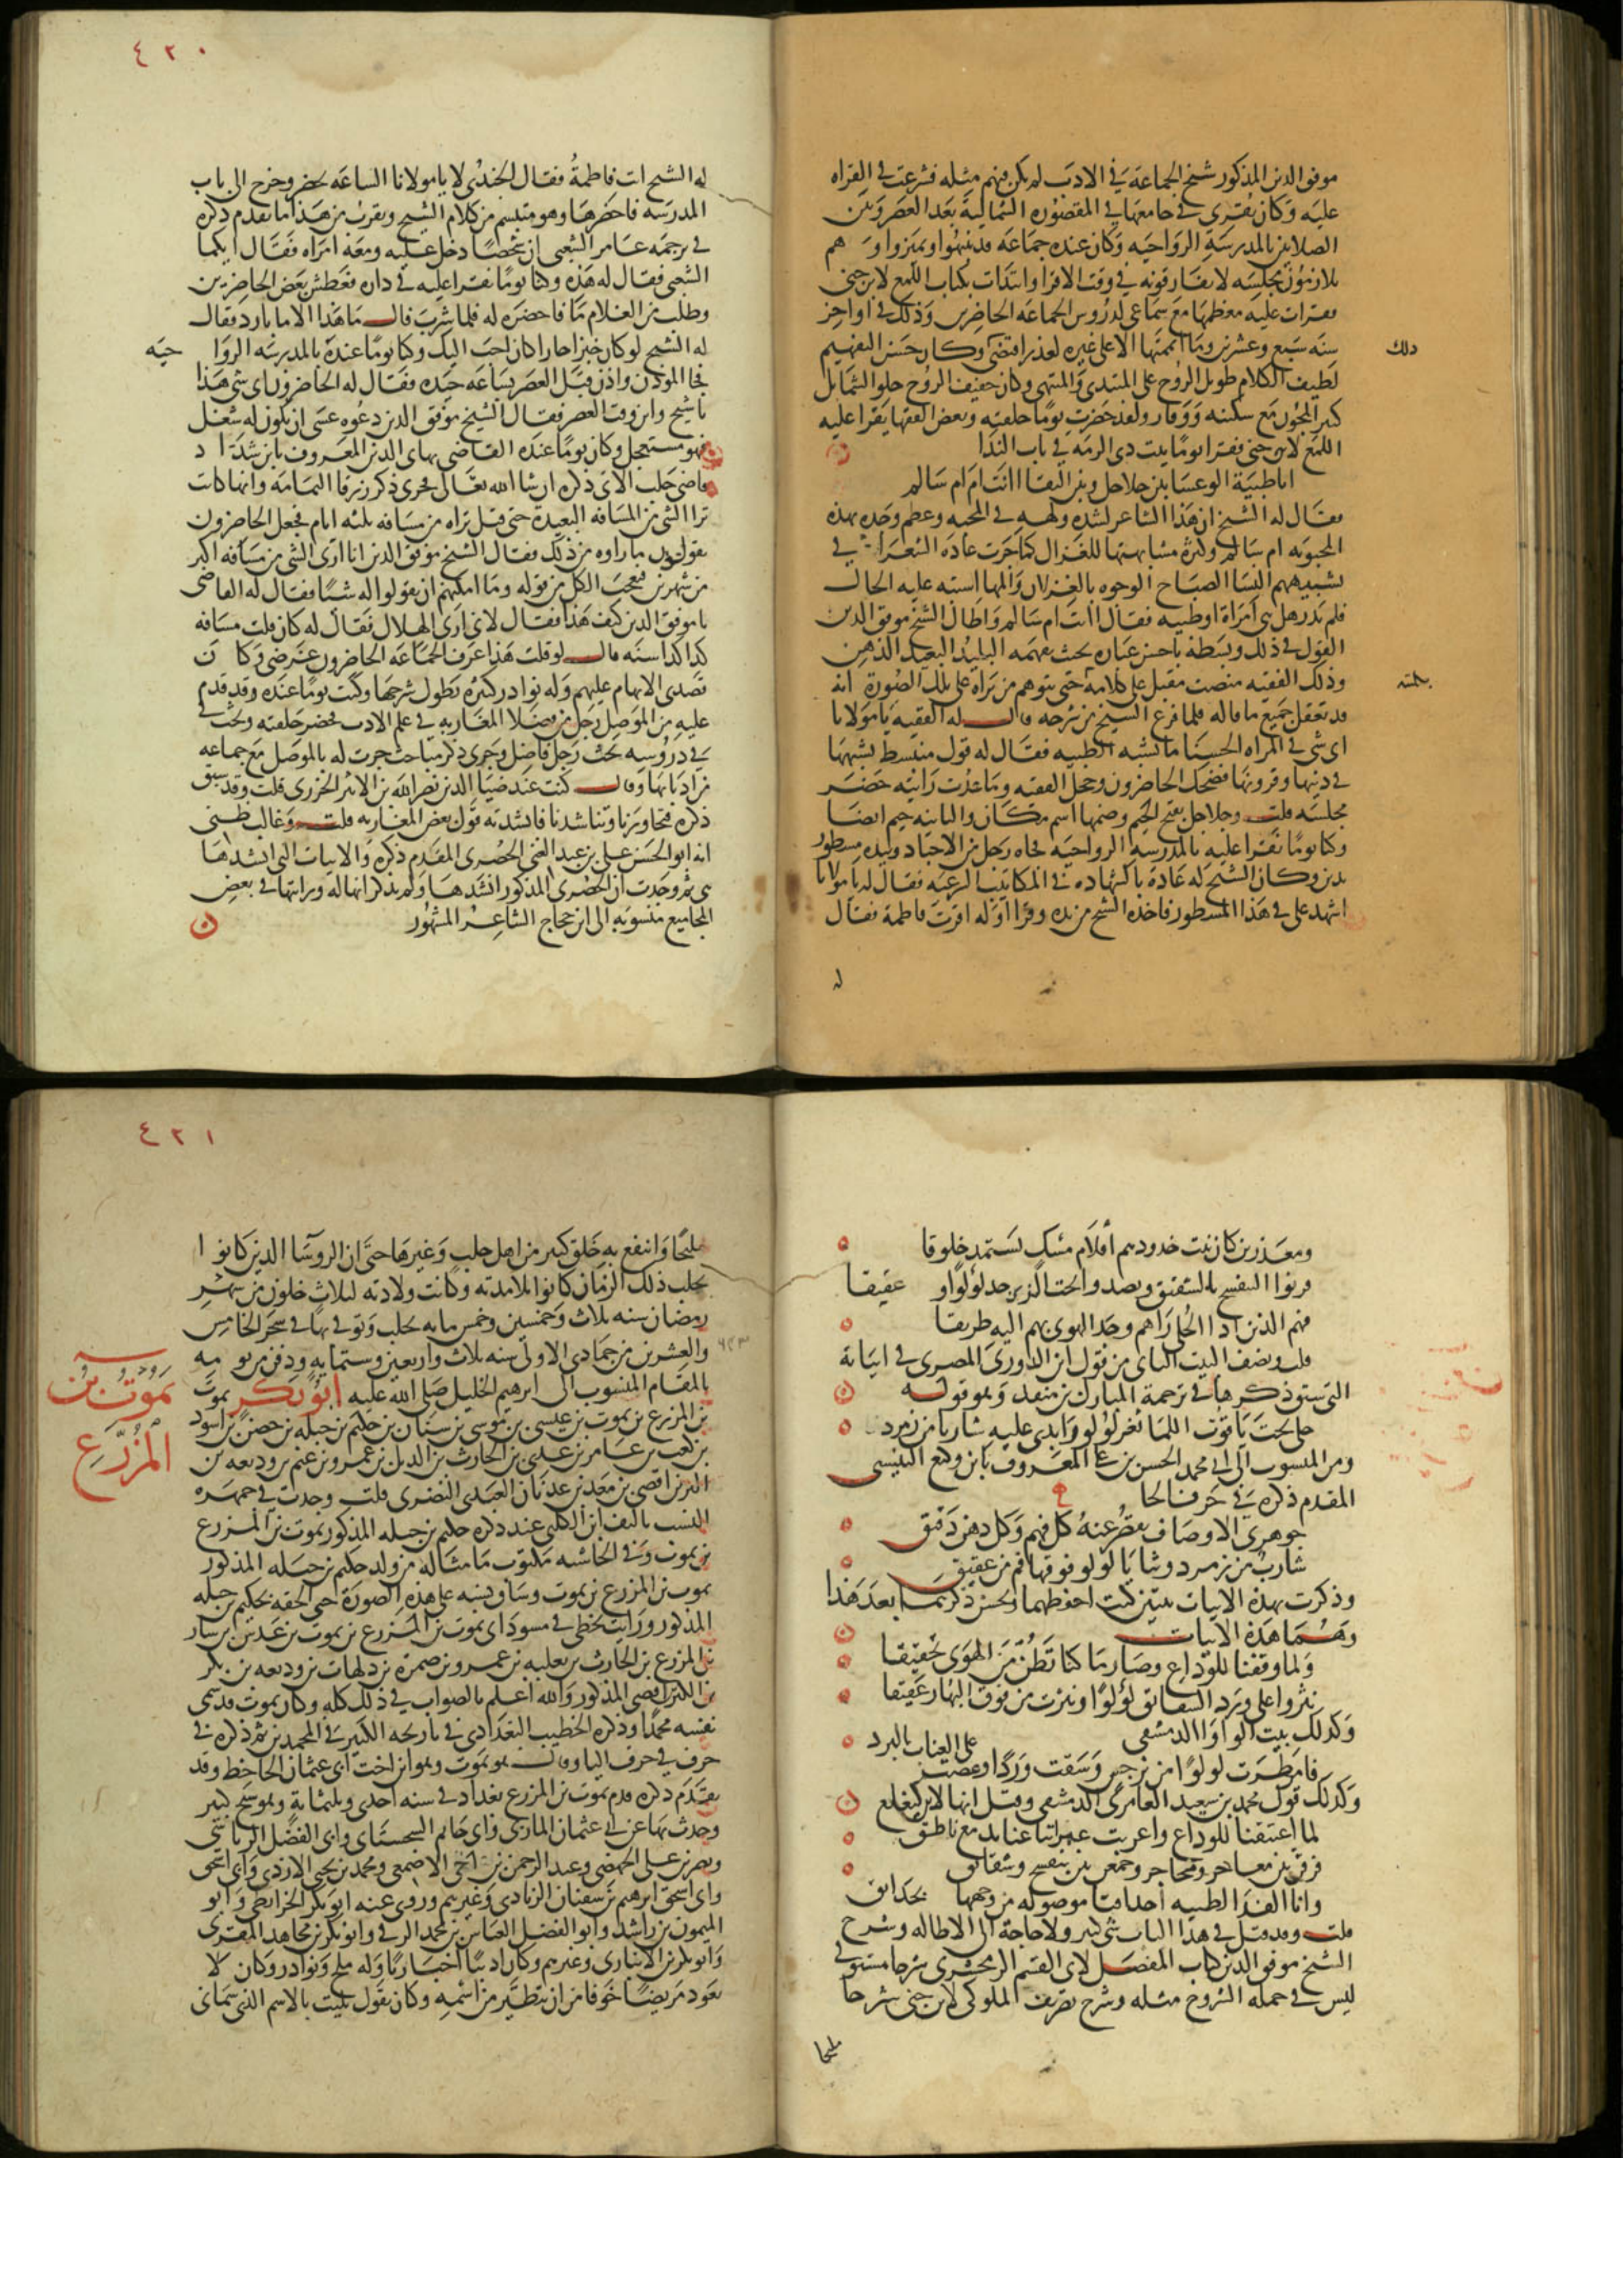 موفق الدين المذكور شيخ الجماعة في الادب لم يكن فيهم مثله فشرعت في القراه
عليه وكان يقرى في جامعها في المقصوره الشمالية بعد العصر وبين
الصلاتين بالمدرسة الرواحيه وكان عنده جماعه قد تنبهوا وتميزوا و هم
ملازمون مجلسه لا يفارقونه في وقت الاقرا وابتدات بكتاب اللمع لابن جنى
فقرات عليه معظمها مع سماعى لدروس الجماعه الحاضرين وذلك في اواخر
سنه سبع وعشرين وما اتممتها الا على غيره لعذر اقتضى وكان حسن التفهيم
ذلك
لطيف الكلام طويل الروح على المبتدى والمنتهى وكان خفيف الروح حلو الشمايل
كثير المجون مع سكينه ووقار ولقد حضرت يوما حلقته وبعض الفقها يقرا عليه
اللمع لابن جنى فقرا يوما بيت ذى الرمه في باب الندا
ايا ظبية الوعسا بين جلاجل وبين النقا اانت ام ام سالم
فقال له الشيخ ان هذا الشاعر لشده ولهه في المحبه وعظم وجده بهذه
المحبوبه ام سالم وكثرة مشابهتها للغزال كما جرت عاده الشعرا في
تشبيههم النسا الصباح الوجوه بالغزلان والمها اشتبه عليه الحال
فلم يدر هل هي امراة او ظبيه فقال اانت ام ام سالم واطال الشيخ موفق الدين
القول في ذلك وبسطه باحسن عباره بحيث يفهمه البليد البعيد الذهن
وذلك الفقيه منصت مقبل على كلامه حتى يتوهم من يراه على تلك الصورة انه
بكليته
قد تعقل جميع ما قاله فلما فرغ الشيخ من شرحه قال له الفقيه يا مولانا
اى شى في المراه الحسنا ما يشبه الظبيه فقال له قول منبسط يشبهها
في ذنبها وقرونها فضحك الحاضرون وخجل الفقيه وما عدت رايته حضر
مجلسه قلت وجلاجل بفتح الجيم وضمها اسم مكان والثانيه جيم ايضا
وكنا يوما نقرا عليه بالمدرسه الرواحيه فجاه رجل من الاجناد وبيده مسطور
بدين وكان الشيخ له عادة بالشهاده في المكاتيب الشرعيه فقال له يا مولانا
اشهد على في هذا المسطور فاخذه الشيخ من يده وقرا اوله اقرت فاطمة فقال
له
٤٢٠
له الشيخ انت فاطمة فقال الجندى لا يا مولانا الساعه تحضر وخرج الى باب
المدرسه فاحضرها وهو متبسم من كلام الشيخ ويقرب من هذا ما تقدم ذكره
في ترجمه عامر الشعبى ان شخصا دخل عليه ومعه امراه فقال ايكما
الشعبى فقال له هذه وكنا يوما نقرا عليه في داره فعطش بعض الحاضرين
وطلب من الغلام ما فاحضره له فلما شرب قال ما هذا الا ما بارد فقال
له الشيخ لو كان خبزا حارا كان احب اليك وكنا يوما عنده بالمدرسه الروا حيه
فجا الموذن واذن قبل العصر بساعه جيده فقال له الحاضرون اى شى هذا
يا شيخ واين وقت العصر فقال الشيخ موفق الدين دعوه عسى ان يكون له شغل
فهو مستعجل وكان يوما عنده القاضى بهاى الدين المعروف بابن شدا د
قاضى حلب الاتى ذكره ان شا الله تعالى فجرى ذكر زرقا اليمامه وانها كانت
ترا الشى من المسافه البعيدة حتى قيل تراه من مسافه ثلثه ايام فجعل الحاضرون
يقولون ما راوه من ذلك فقال الشيخ موفق الدين انا ارى الشى من مسافه اكثر
من شهرين فعجب الكل من قوله وما امكنهم ان يقولوا له شيئا فقال له القاضى
يا موفق الدين كيف هذا فقال لانى ارى الهلال فقال له كان قلت مسافه
كذا كذا سنه قال لو قلت هذا عرف الجماعه الحاضرون غرضى وكا ن
قصدى الابهام عليهم وله نوادر كثيره يطول شرحها وكنت يوما عنده وقد قدم
عليه من الموصل رجل من فضلا المغاربه في علم الادب فحضر حلقته وبحث في
في دروسه بحث رجل فاضل وجرى ذكر مباحث جرت له بالموصل مع جماعه
من ادبائها وقال كنت عند ضيا الدين نصر الله بن الاثير الجزرى قلت وقد سبق
ذكره فتحاورنا وتناشدنا فانشدته قول بعض المغاربه قلت وغالب ظنى
انه ابو الحسن على بن عبد الغنى الحصرى المقدم ذكره والابيات التى انشدها
هى ثم وجدت ان الحصرى المذكور انشدها ولم يذكر انها له ورايتها في بعض
المجاميع منسوبه الى ابن حجاج الشاعر المشهور
ومعذرين كان نبت خدودهم اقلام مسك تستمد خلوقا
قرنوا البنفسج بالشقيق ونضدوا تحت الزبرجد لولوا و عقيقا
فهم الذين اذا الخلى راهم وجد الهوى بهم اليه طريقا
قلت ونصف البيت الثانى من قول ابن الذروى المصرى في ابياته
التى ستو ذكرها في ترجمة المبارك بن منقذ وهو قوله
حلى تحت ياقوت اللما ثغر لولو وابدى عليه شاربا من زمرد
ومن المنسوب الى ابى محمد الحسن بن على المعروف بابن وكيع التنيسى
المقدم ذكره في حرف الحا
جوهرى الاوصاف يقصر عنه كل فهم وكل ذهن دقيق
شارب من زمرد وثنايا لولو فوقها فم من عقيق
وذكرت بهذه الابيات بيتين كنت احفظهما واحسن ذكرهما بعد هذا
وهما هذه الابيات
ولما وقفنا للوداع وصار ما كنا نظن من الهوى تحقيقا
نثروا على ورد الشقائق لولوا ونثرت من فوق البهار عقيقا
وكذلك بيت الواوا الدمشقى
فامطرت لولوا من نرجس وسقت وردا وعضت على العناب بالبرد
وكذلك قول محمد بن سعيد العامرى الدمشقى وقيل انها لابن كيغلغ
لما اعتنقنا للوداع واعربت عبراتنا عنا بدمع ناطق
فرقن بين معاجر ومحاجر وجمعن بين بنفسج وشقائق
وانا الفدا لظبيه احداقنا موصوله من وجهها بحدائق
قلت وقد قيل في هذا الباب شى كثير ولا حاجة الى الاطاله وشرح
الشيخ موفق الدين كتاب المفصل لابى القسم الزمخشرى شرحا مستوفى
ليس في جمله الشروح مثله وشرح تصريف الملوكى لابن جنى شرحا
مليحا
٤٢١
مليحا وانتفع به خلق كثير من اهل حلب وغيرها حتى ان الروسا الذين كانوا
بحلب ذلك الزمان كانوا تلامذته وكانت ولادته لثلاث خلون من شهر
رمضان سنه ثلاث وخمسين وخمس مايه بحلب وتوفى بها في سحر الخامس
والعشرين من جمادى الاولى سنه ثلاث واربعين وستمايه ودفن من يو مه
٦٤٣
بالمقام المنسوب الى ابرهيم الخليل صلى الله عليه ابو بكر يموت
يموت بن المزرع
بن المزرع بن يموت بن عيسى بن موسى بن سنان بن حكيم بن جبله بن حصن بن اسود
بن كعب بن عامر بن عدى بن الحارث بن الديل بن عمرو بن غنم بن وديعه بن
لكيز بن افصى بن معد بن عدنان العبدى البصرى قلت وجدت في جمهره
النسب تاليف ابن الكلبى عند ذكره حكيم بن جبله المذكور يموت بن المزرع
بن يموت وفى الحاشيه مكتوب ما مثاله من ولد حكيم بن جبله المذكور
يموت بن المزرع بن يموت وساق نسبه على هذه الصورة حتى الحقه بحكيم بن جبله
المذكور ورايت بخطى في مسوداتى يموت بن المزرع بن يموت بن عدس بن سيار
بن المزرع بن الحارث بن ثعلبه بن عمرو بن ضمره بن دلهاث بن وديعه بن بكر
بن لكيز بن افصى المذكور والله اعلم بالصواب في ذلك كله وكان يموت قد سمى
نفسه محمدا وذكره الخطيب البغدادى في تاريخه الكبير في المحمدين ثم ذكره في
حرف في حرف اليا وقال هو يموت وهو ابن اخت ابى عثمان الجاحظ وقد
تقدم ذكره قدم يموت بن المزرع بغداد في سنه احدى وثلثمايه وهو شيخ كبير
وحدث بها عن ابى عثمان المازنى وابى حاتم السجستانى وابى الفضل الرياشى
ونصر بن على الجهضمى وعبد الرحمن بن اخى الاصمعى ومحمد بن يحيى الازدى وابى اسحق
وابى اسحق ابرهيم بن سفيان الزيادى وغيرهم وروى عنه ابو بكر الخرائطى وابو
الميمون بن راشد وابو الفضل العباس بن محمد الرقى وابو بكر بن مجاهد المقرى
وابو بكر بن الانبارى وغيرهم وكان اديبا اخباريا وله ملح ونوادر وكان لا
يعود مريضا خوفا من ان يتطير من اسمه وكان يقول بليت بالاسم الذى سمانى